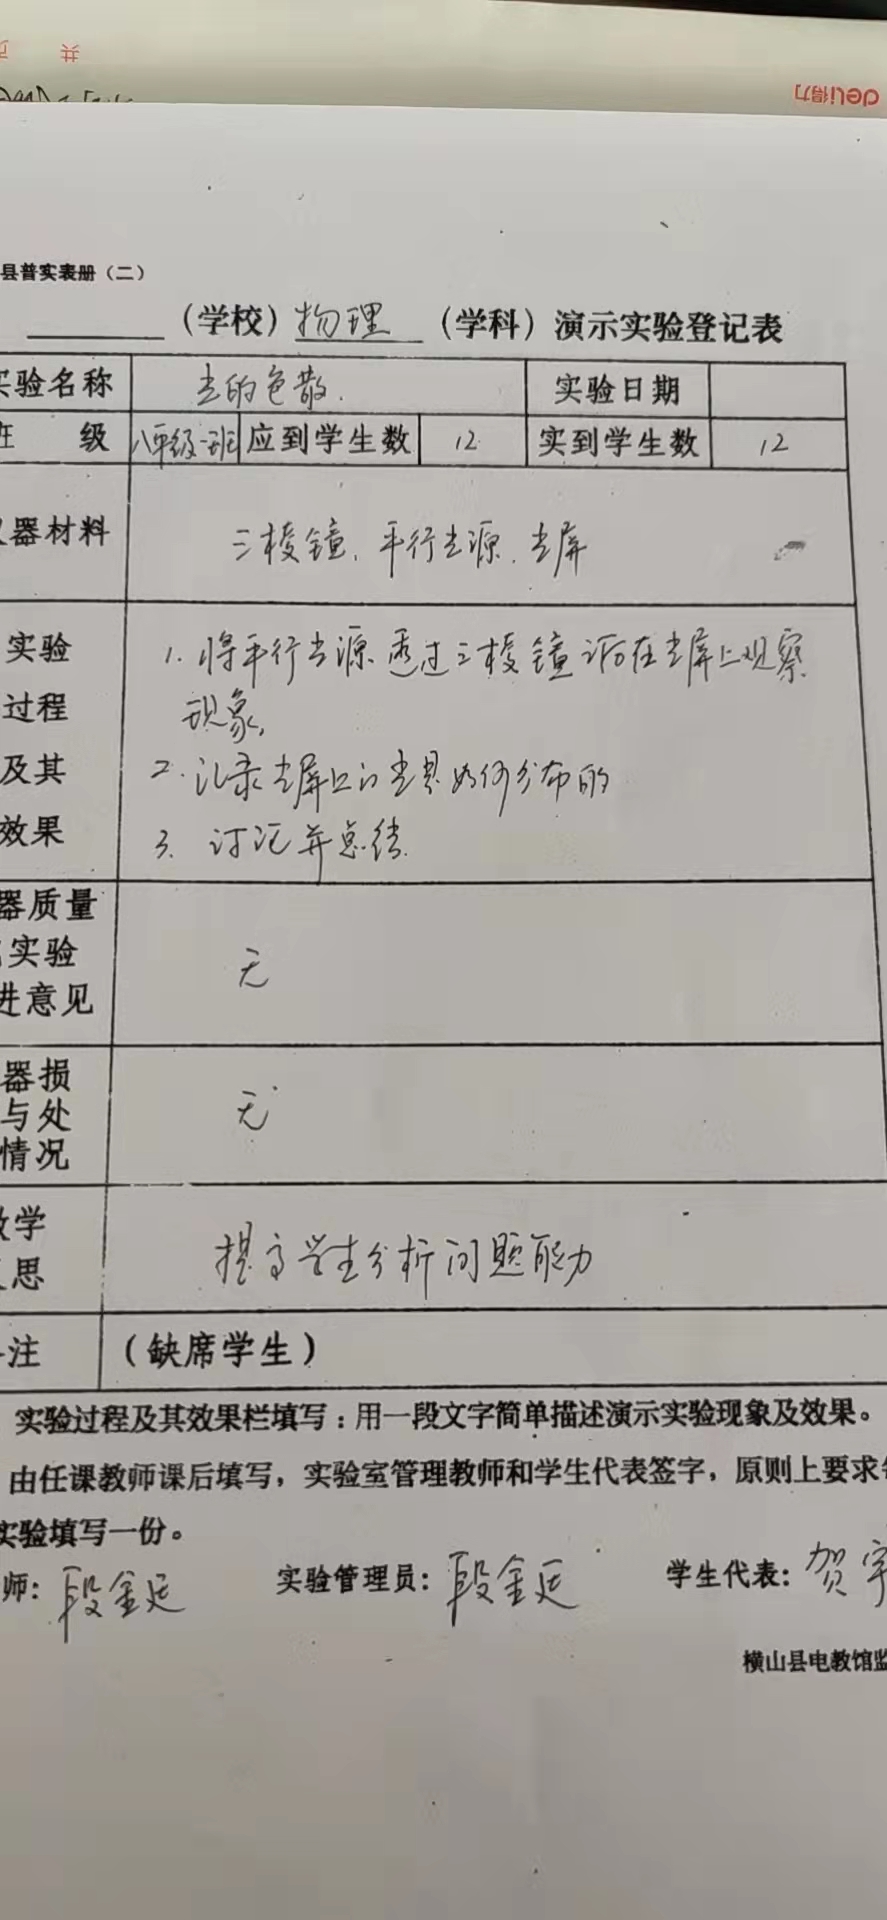 共 页
deli得力
县普实表册（二）
（学校）物理（学科）演示实验登记表
实验名称 光的色散. 实验日期
班 级 八年级一班 应到学生数 12 实到学生数 12
仪器材料 三棱镜. 平行光源. 光屏
实验 1. 将平行光源透过三棱镜 在光屏上观察
过程 现象,
及其 2. 记录光屏上的光是如何分布的
效果 3. 讨论并总结.
器质量
实验 无
进意见
器损
与处 无
情况
教学
反思 提高学生分析问题能力
注 （缺席学生）
实验过程及其效果栏填写：用一段文字简单描述演示实验现象及效果。
由任课教师课后填写，实验室管理教师和学生代表签字，原则上要求
实验填写一份。
师: 段金廷 实验管理员: 段金廷 学生代表: 贺宇
横山县电教馆监